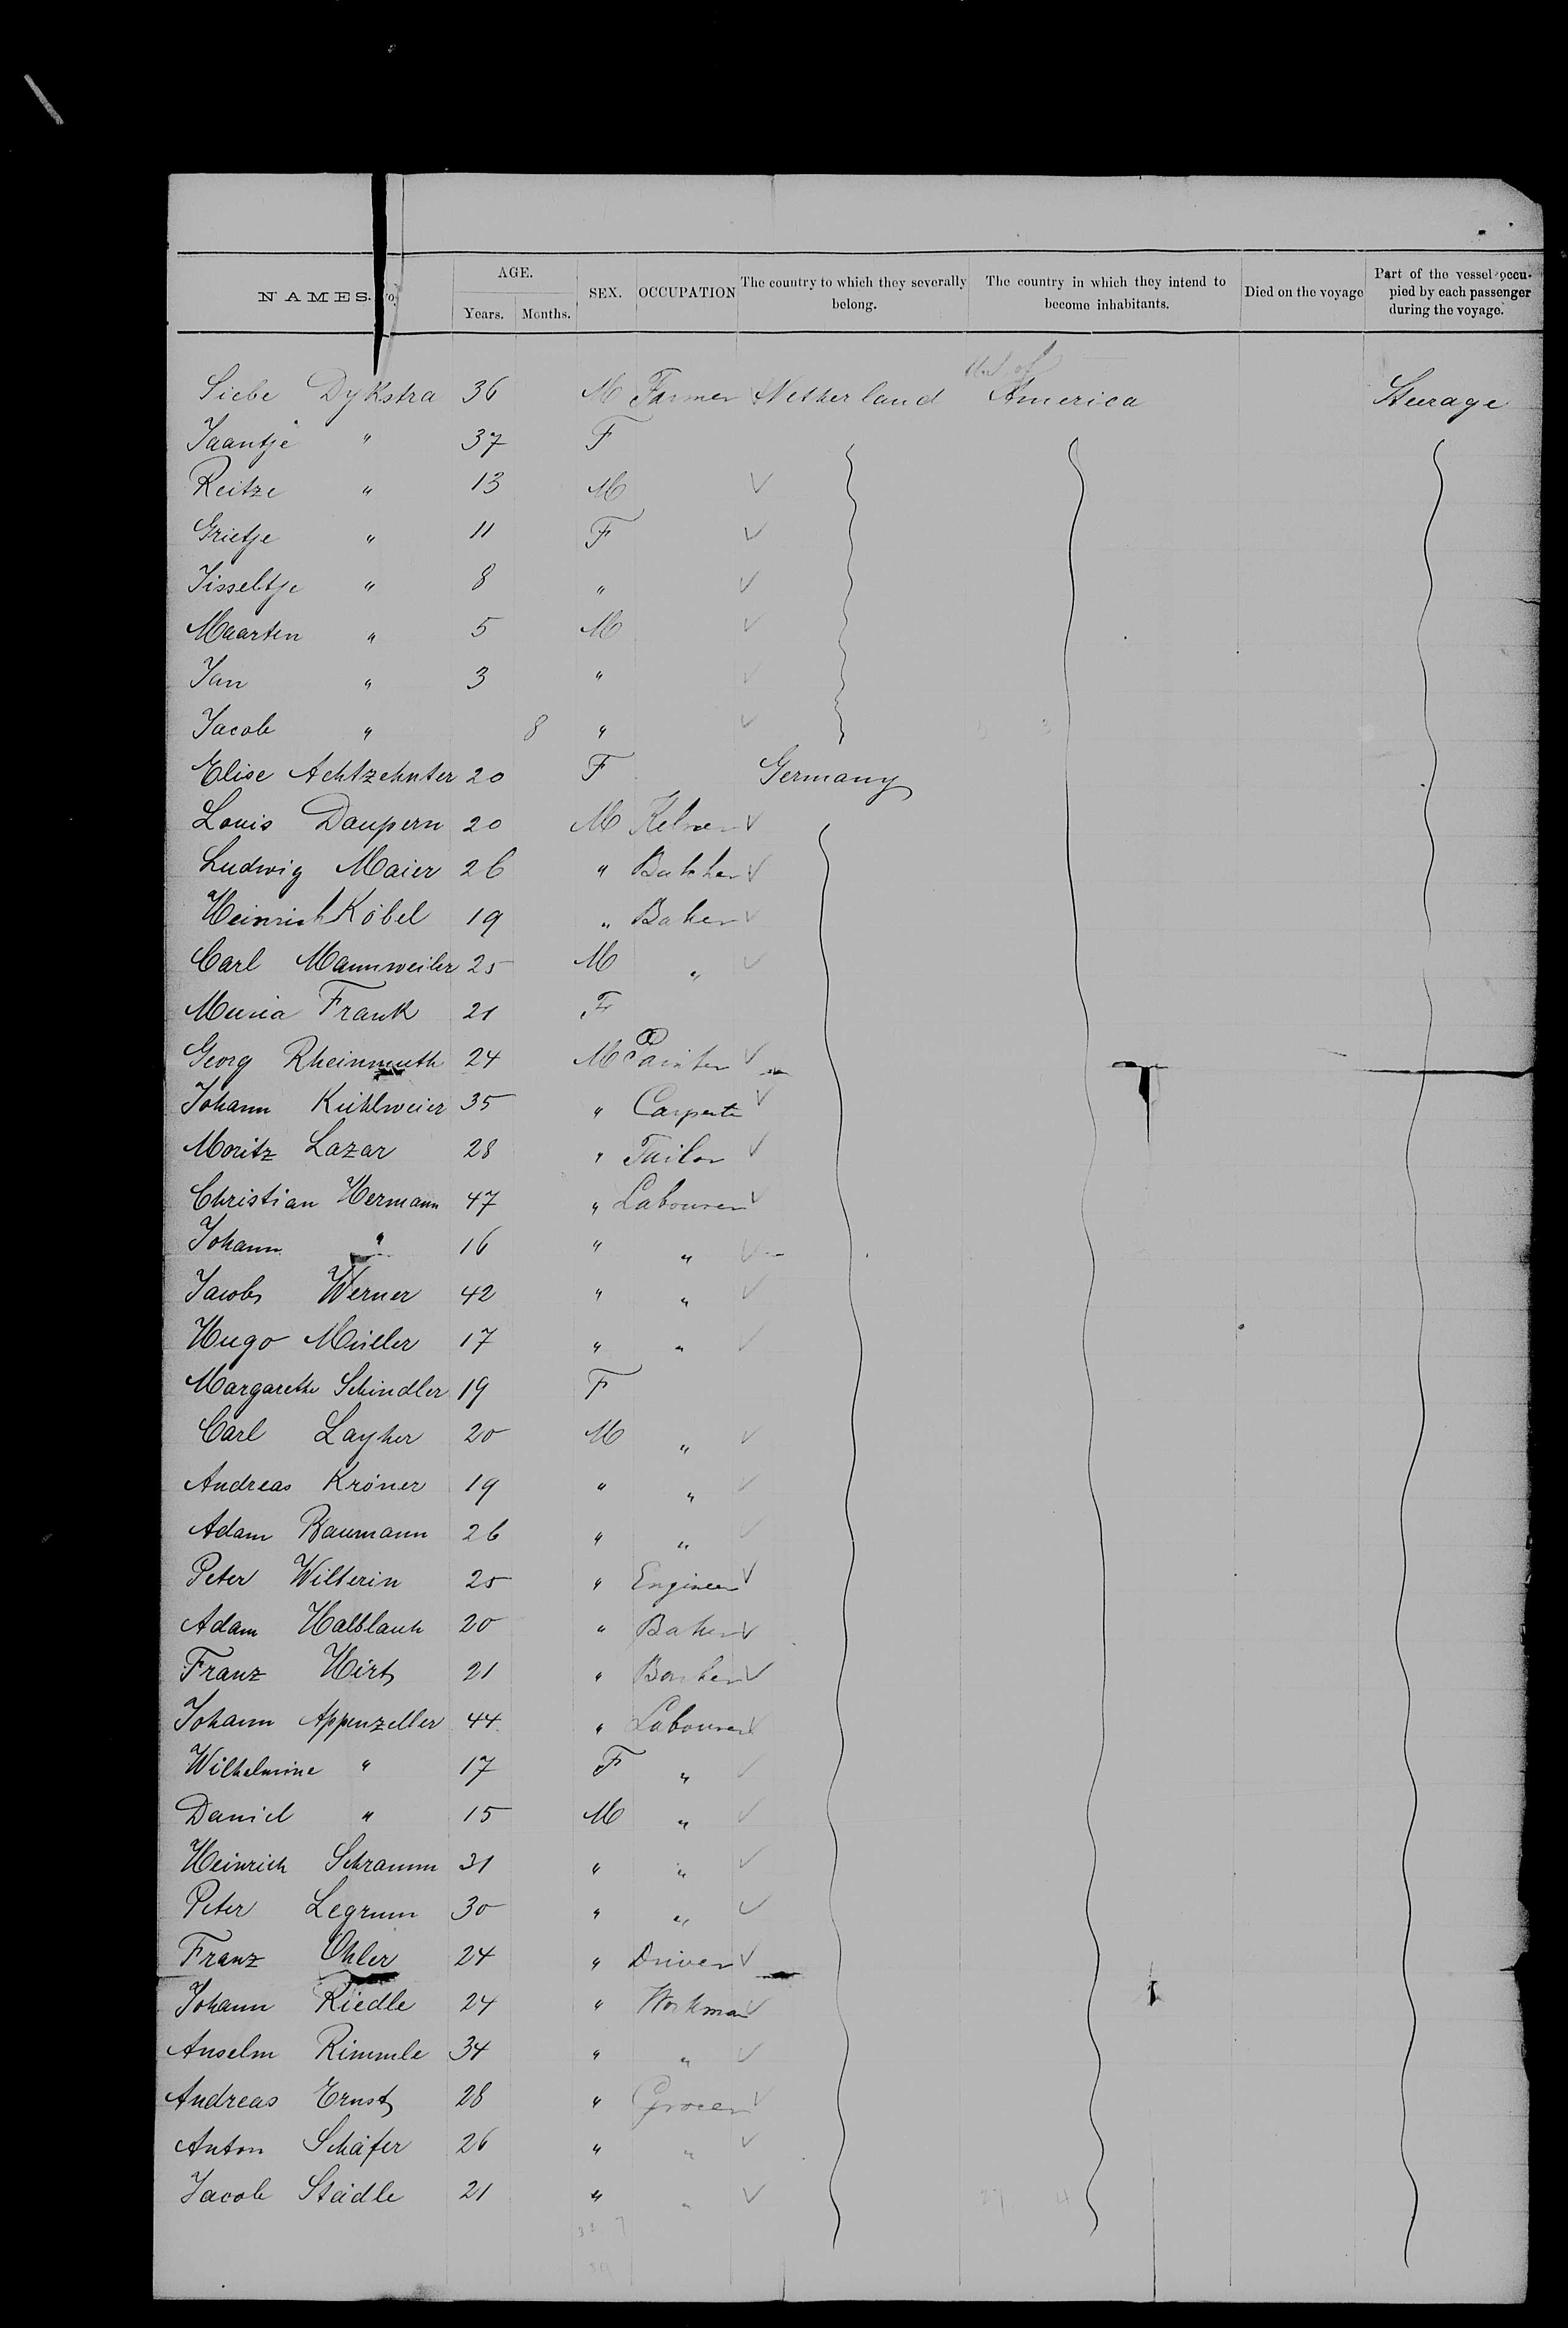 NAMES.
AGE.
Years. Months.
SEX.
OCCUPATION
The country to which they severally belong.
The country in which they intend to become inhabitants.
Died on the voyage
Part of the vessel occupied by each passenger during the voyage.
Siebe Dykstra 36 M Farmer Netherland America Steerage
Jaantje " 37 F
Reitze " 13 M
Grietje " 11 F
Jisseltje " 8 "
Maarten " 5 M
Jan " 3 "
Jacob " 8 "
Elise Achtzehnter 20 F Germany
Louis Daupern 20 M Kelner
Ludwig Maier 26 " Butcher
Heinrich Köbel 19 " Baker
Carl Mannweiler 25 M "
Maria Frank 21 F
Georg Rheinmuth 24 M Painter
Johann Kühlweier 35 " Carpenter
Moritz Lazar 28 " Tailor
Christian Hermann 47 " Labourer
Johann " 16 " "
Jacob Werner 42 " "
Hugo Müller 17 " "
Margarethe Schindler 19 F
Carl Layher 20 M "
Andreas Kröner 19 " "
Adam Baumann 26 " "
Peter Wilterin 25 " Engineer
Adam Halblaub 20 " Baker
Franz Hirt 21 "
Johann Appenzeller 44 " Labourer
Wilhelmine " 17 F "
Daniel " 15 M "
Heinrich Schramm 31 " "
Peter Legrum 30 " "
Franz Ohler 24 " Driver
Johann Riedle 24 " Workman
Anselm Rimmle 34 " "
Andreas Ernst 28 " Grocer
Anton Schäfer 26 " "
Jacob Städle 21 " "